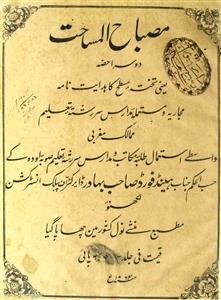 مصباح المساحت
دوسرا حصہ
یعنی تختہ مسطح کا ہدایت نامہ
مجاریہ و مستعملہ مدارس سررشتہ تعلیم
ممالک مغربی
واسطے استعمال طلبہ مکاتب و مدارس سررشتہ تعلیم صوبہ اودھ کے
حسب الحکم جناب ہینڈ فورڈ صاحب بہادر ڈائرکٹر آف پبلک انسٹرکشن
لکھنؤ
مطبع منشی نول کشور مین چھاپا گیا
قیمت فی جلد پائی